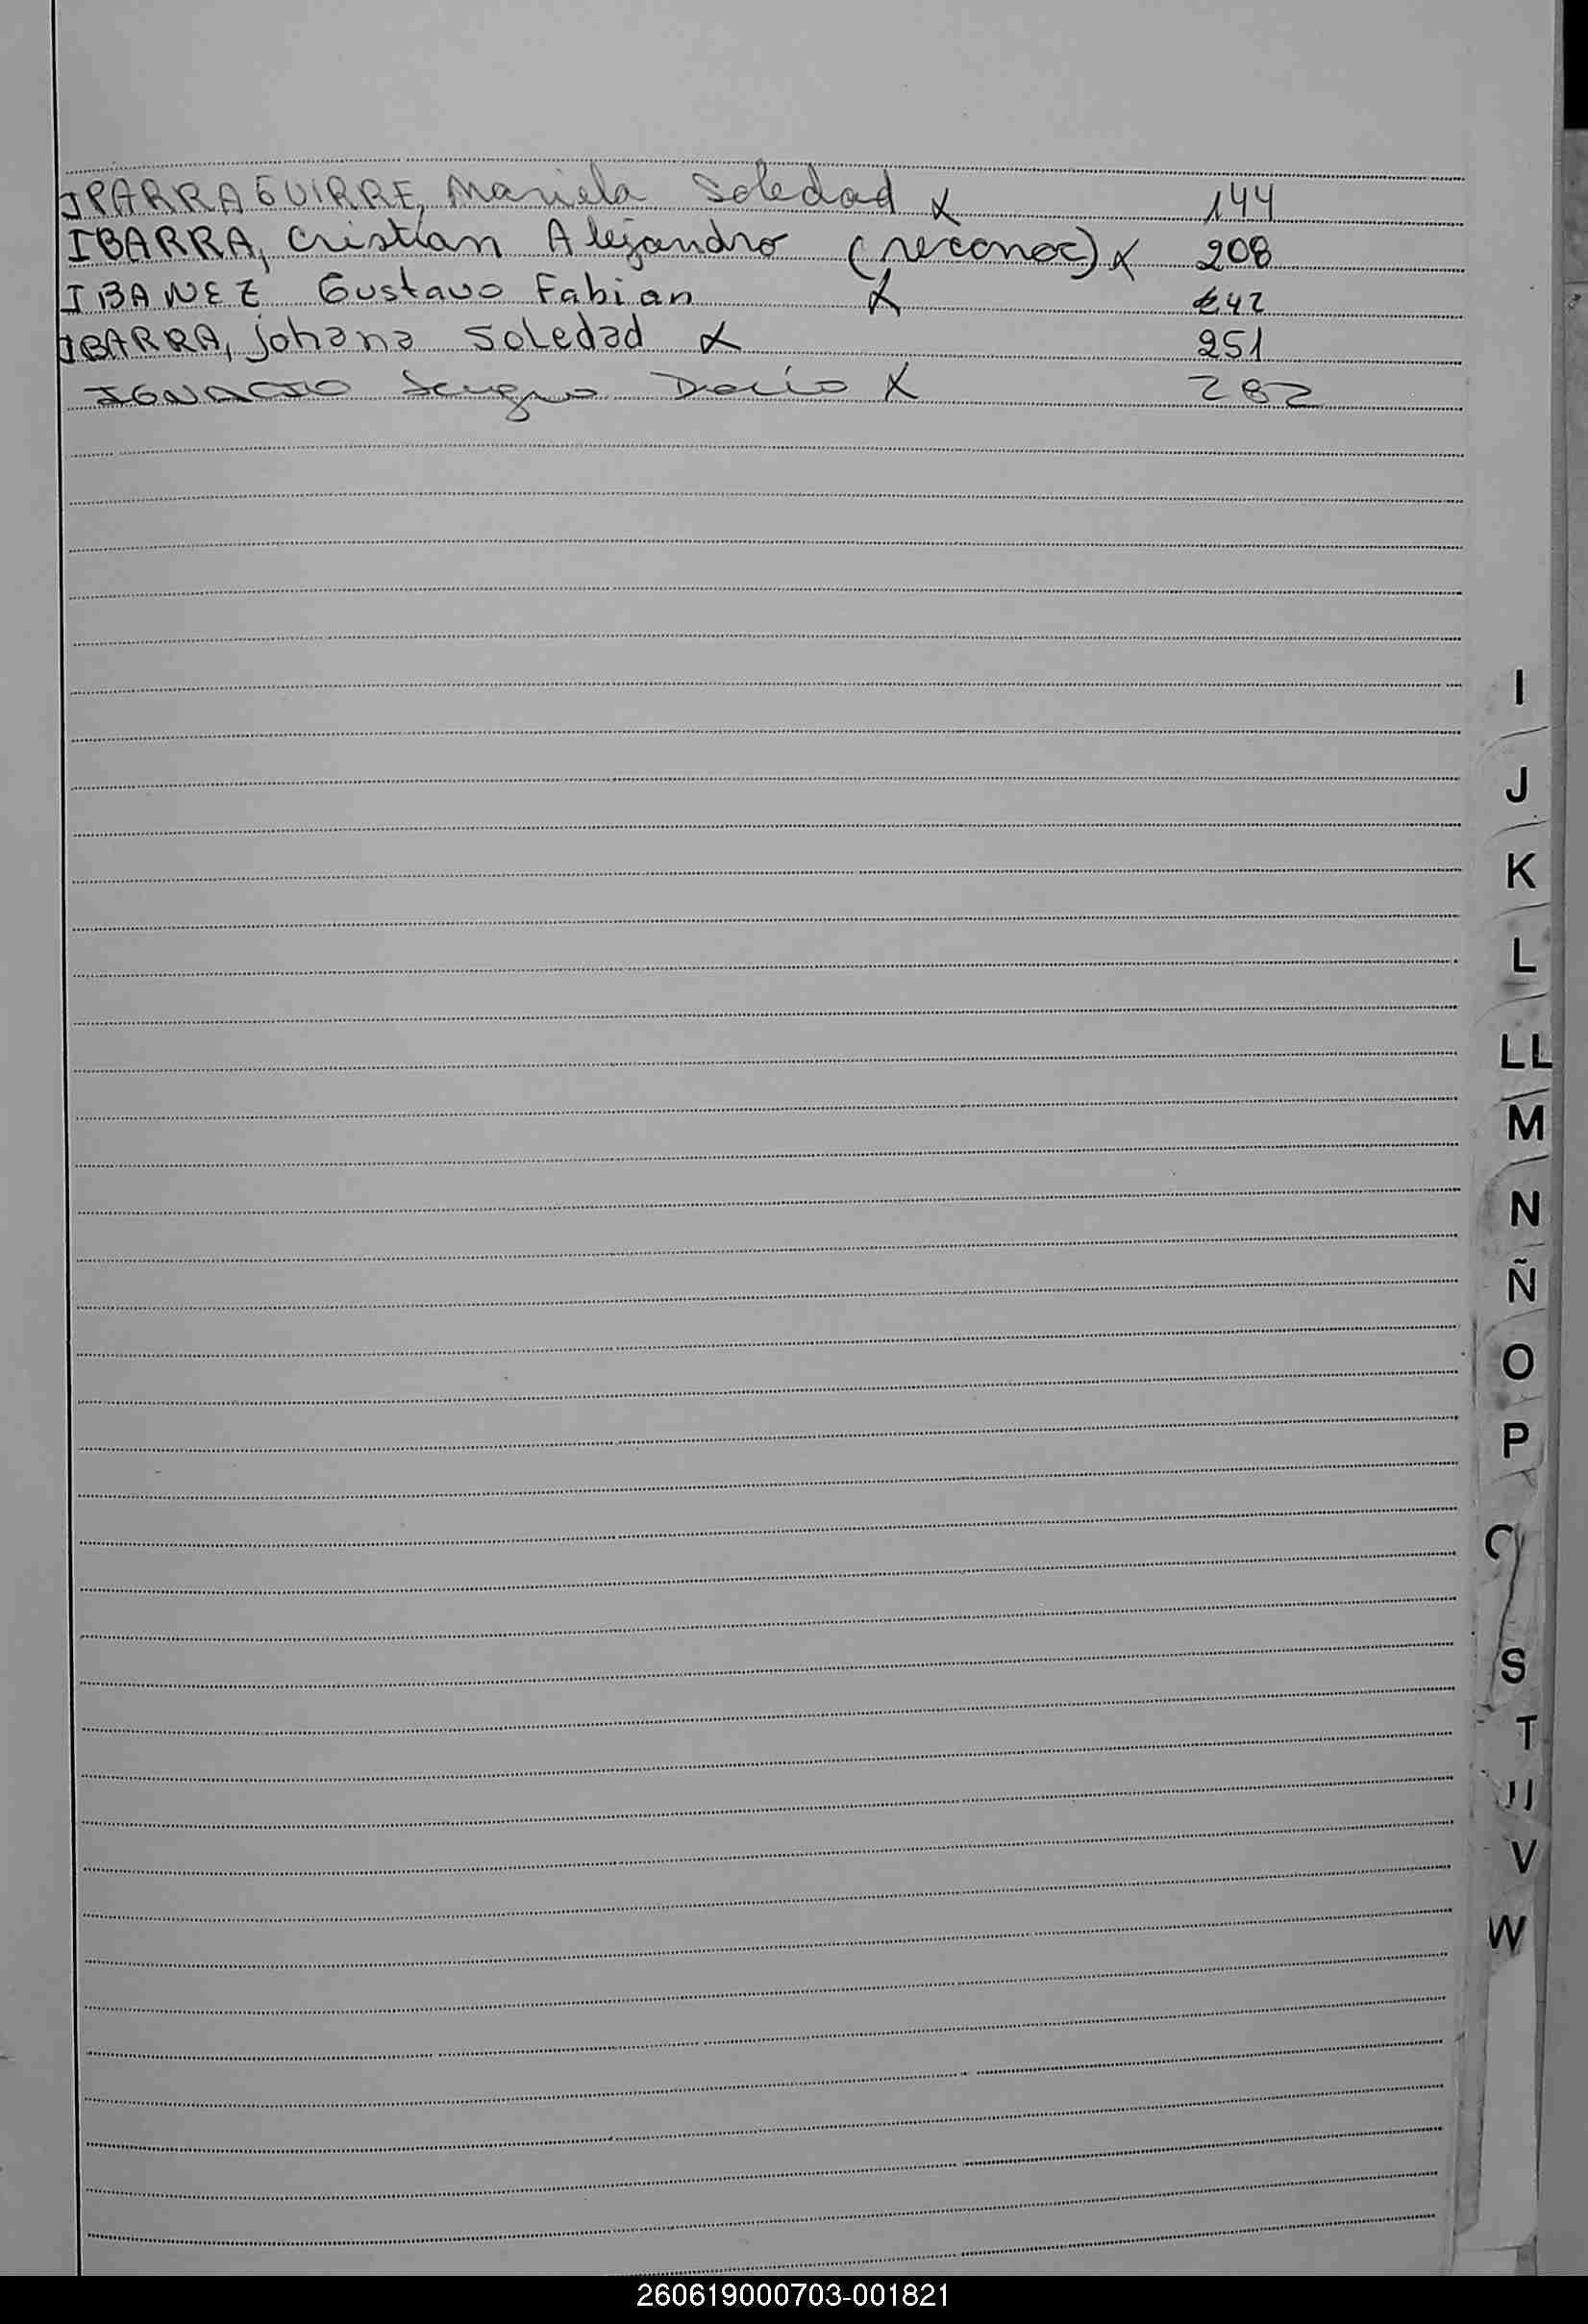 IPARRAGUIRRE, Mariela Soledad x 144
IBARRA, Cristian Alejandro (reconoc) x 208
IBANEZ Gustavo Fabian x 242
IBARRA, Johana Soledad x 251
IGNACIO Sergio Dario x 282
I
J
K
L
LL
M
N
Ñ
O
P
S
T
U
V
W
260619000703-001821